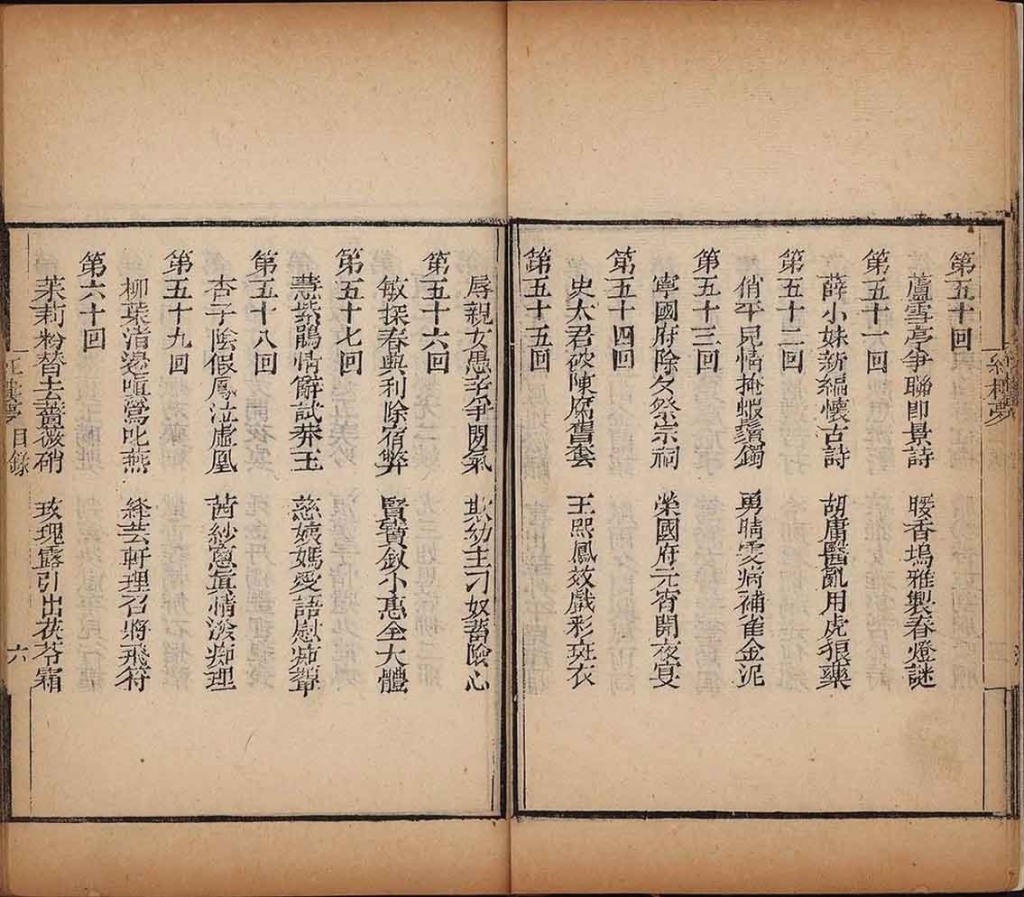 紅樓夢
第五十回
蘆雪亭爭聯即景詩　暖香塢雅製春燈謎
第五十一回
薛小妹新編懷古詩　胡庸醫亂用虎狼藥
第五十二回
俏平兒情掩蝦鬚鐲　勇晴雯病補雀金泥
第五十三回
寧國府除夕祭宗祠　榮國府元宵開夜宴
第五十四回
史太君破陳腐舊套　王熙鳳效戲彩斑衣
第五十五回
辱親女愚妾爭閒氣　欺幼主刁奴蓄險心
第五十六回
敏探春興利除宿弊　賢寶釵小惠全大體
第五十七回
慧紫鵑情辭試莽玉　慈姨媽愛語慰痴顰
第五十八回
杏子陰假鳳泣虛凰　茜紗窻真情揆痴理
第五十九回
柳葉渚邊嗔鶯叱燕　絳芸軒理召將飛符
第六十回
茉莉粉替去薔薇硝　玫瑰露引出茯苓霜
紅樓夢　目錄　六